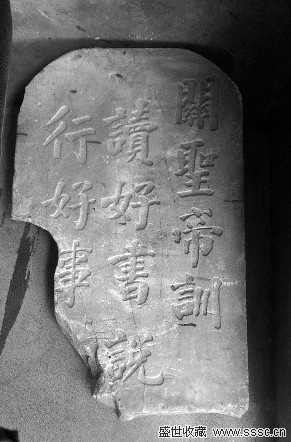 關聖帝訓
讀好書說
行好事
盛世收藏
www.sssc.cn